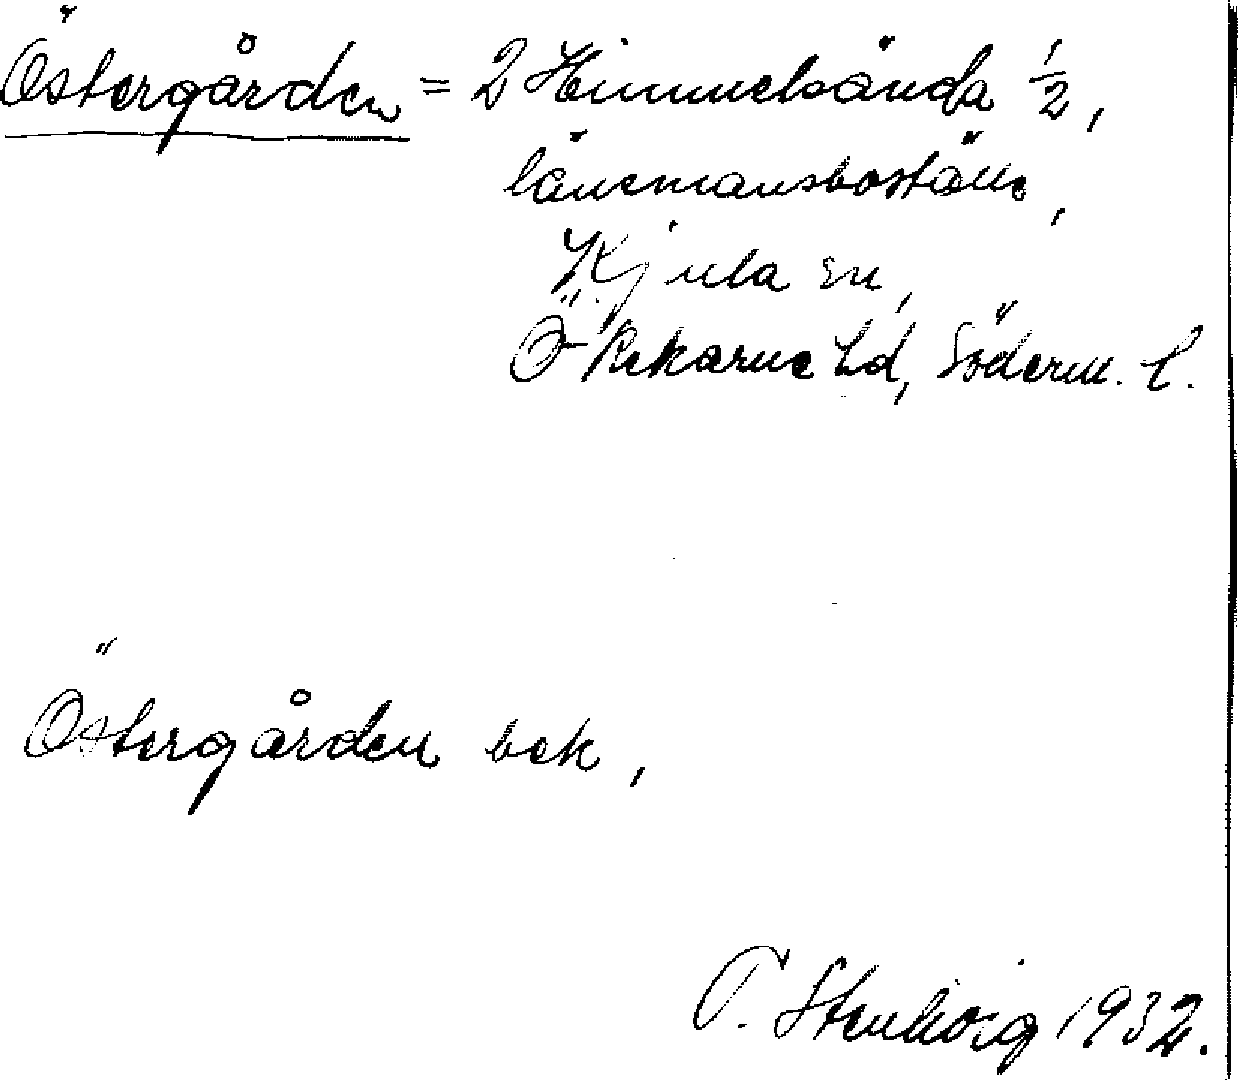 Östergården = 2 Himmelsända 1/2,
länsmansboställe,
Kjula sn,
Ö Rekarne hd, Söderm. l.
Östergården bek,
1932.